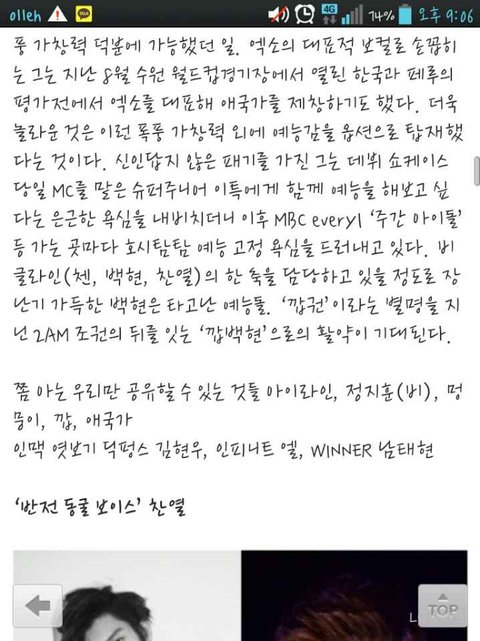 olleh 4G 74% 오후 9:06
풍 가창력 덕분에 가능했던 일. 엑소의 대표적 보컬로 손꼽히
는 그는 지난 8월 수원 월드컵경기장에서 열린 한국과 페루의
평가전에서 엑소를 대표해 애국가를 제창하기도 했다. 더욱
놀라운 것은 이런 폭풍 가창력 외에 예능감을 옵션으로 탑재했
다는 것이다. 신인답지 않은 패기를 가진 그는 데뷔 쇼케이스
당일 MC를 맡은 슈퍼주니어 이특에게 함께 예능을 해보고 싶
다는 은근한 욕심을 내비치더니 이후 MBC every1 ‘주간 아이돌’
등 가는 곳마다 호시탐탐 예능 고정 욕심을 드러내고 있다. 비
글라인(첸, 백현, 찬열)의 한 축을 담당하고 있을 정도로 장
난기 가득한 백현은 타고난 예능돌. ‘깝권’이라는 별명을 지
닌 2AM 조권의 뒤를 잇는 ‘깝백현’으로의 활약이 기대된다.
쫌 아는 우리만 공유할 수 있는 것들 아이라인, 정지훈(비), 멍
뭉이, 깝, 애국가
인맥 엿보기 딕펑스 김현우, 인피니트 엘, WINNER 남태현
‘반전 동굴 보이스’ 찬열
TOP